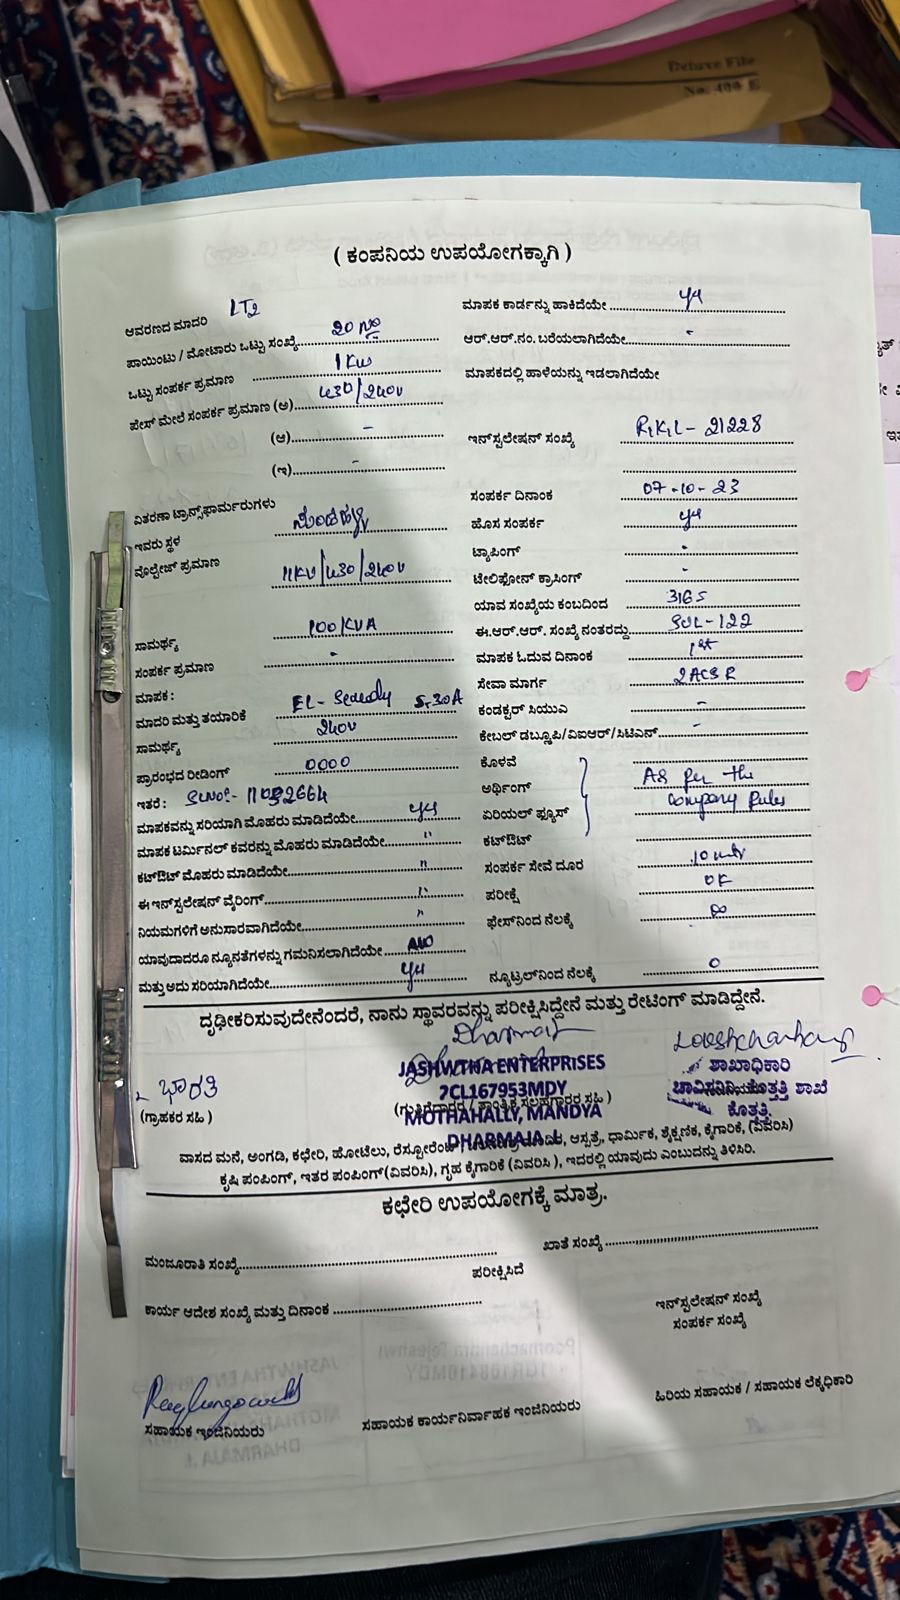 Deluxe File
No. 400 E
( ಕಂಪನಿಯ ಉಪಯೋಗಕ್ಕಾಗಿ )
ಆವರಣದ ಮಾದರಿ LT2
ಪಾಯಿಂಟು / ಮೋಟಾರು ಒಟ್ಟು ಸಂಖ್ಯೆ 20 No
ಒಟ್ಟು ಸಂಪರ್ಕ ಪ್ರಮಾಣ 1KW
ಫೇಸ್ ಮೇಲೆ ಸಂಪರ್ಕ ಪ್ರಮಾಣ (ಅ) 430/240V
(ಆ) -
(ಇ) -
ವಿತರಣಾ ಟ್ರಾನ್ಸ್‌ಫಾರ್ಮರುಗಳು
ಇವರು ಸ್ಥಳ
ವೊಲ್ಟೇಜ್ ಪ್ರಮಾಣ 11KV/430/240V
ಸಾಮರ್ಥ್ಯ 100KVA
ಸಂಪರ್ಕ ಪ್ರಮಾಣ -
ಮಾಪಕ :
ಮಾದರಿ ಮತ್ತು ತಯಾರಿಕೆ EL- 5-30A
ಸಾಮರ್ಥ್ಯ 240V
ಪ್ರಾರಂಭದ ರೀಡಿಂಗ್ 0000
ಇತರೆ : SLNo:-
ಮಾಪಕವನ್ನು ಸರಿಯಾಗಿ ಮೊಹರು ಮಾಡಿದೆಯೇ yes
ಮಾಪಕ ಟರ್ಮಿನಲ್ ಕವರನ್ನು ಮೊಹರು ಮಾಡಿದೆಯೇ "
ಕಟ್‌ಔಟ್ ಮೊಹರು ಮಾಡಿದೆಯೇ "
ಈ ಇನ್‌ಸ್ಟಲೇಷನ್ ವೈರಿಂಗ್ "
ನಿಯಮಗಳಿಗೆ ಅನುಸಾರವಾಗಿದೆಯೇ "
ಯಾವುದಾದರೂ ನ್ಯೂನತೆಗಳನ್ನು ಗಮನಿಸಲಾಗಿದೆಯೇ NO
ಮತ್ತು ಅದು ಸರಿಯಾಗಿದೆಯೇ yes
ಮಾಪಕ ಕಾರ್ಡನ್ನು ಹಾಕಿದೆಯೇ yes
ಆರ್.ಆರ್.ನಂ. ಬರೆಯಲಾಗಿದೆಯೇ -
ಮಾಪಕದಲ್ಲಿ ಹಾಳೆಯನ್ನು ಇಡಲಾಗಿದೆಯೇ
ಇನ್‌ಸ್ಟಲೇಷನ್ ಸಂಖ್ಯೆ RKL- 21228
ಸಂಪರ್ಕ ದಿನಾಂಕ 07-10-23
ಹೊಸ ಸಂಪರ್ಕ yes
ಟ್ಯಾಪಿಂಗ್ -
ಟೇಲಿಫೋನ್ ಕ್ರಾಸಿಂಗ್ -
ಯಾವ ಸಂಖ್ಯೆಯ ಕಂಬದಿಂದ
ಈ.ಆರ್.ಆರ್. ಸಂಖ್ಯೆ ನಂತರದ್ದು SUL-122
ಮಾಪಕ ಓದುವ ದಿನಾಂಕ 1st
ಸೇವಾ ಮಾರ್ಗ 2ACSR
ಕಂಡಕ್ಟರ್ ಸಿಯುಎ -
ಕೇಬಲ್ ಡಬ್ಲ್ಯೂಪಿ/ವಿಐಆರ್/ಸಿಟಿಎಸ್ -
ಕೊಳವೆ
ಅರ್ಥಿಂಗ್ As per the
ಏರಿಯಲ್ ಫ್ಯೂಸ್ company Rules
ಕಟ್‌ಔಟ್
ಸಂಪರ್ಕ ಸೇವೆ ದೂರ 10 mtr
ಪರೀಕ್ಷೆ OK
ಫೇಸ್‌ನಿಂದ ನೆಲಕ್ಕೆ ∞
ನ್ಯೂಟ್ರಲ್‌ನಿಂದ ನೆಲಕ್ಕೆ 0
ದೃಢೀಕರಿಸುವುದೇನೆಂದರೆ, ನಾನು ಸ್ಥಾವರವನ್ನು ಪರೀಕ್ಷಿಸಿದ್ದೇನೆ ಮತ್ತು ರೇಟಿಂಗ್ ಮಾಡಿದ್ದೇನೆ.
ಭಾರತಿ
(ಗ್ರಾಹಕರ ಸಹಿ )
JASHWTHA ENTERPRISES
7CL167953MDY
(ಗುತ್ತಿಗೆದಾರರ / ತಾಂತ್ರಿಕ ಸಲಹಗಾರರ ಸಹಿ )
MOTHAHALLY, MANDYA
DHARMAJA .L
ಶಾಖಾಧಿಕಾರಿ
ಚಾವಿಸನಿನಿ ಕೊತ್ತತ್ತಿ ಶಾಖೆ
ಕೊತ್ತತ್ತಿ.
ವಾಸದ ಮನೆ, ಅಂಗಡಿ, ಕಛೇರಿ, ಹೋಟೆಲು, ರೆಸ್ಟೋರೆಂಟ್ ಆಸ್ಪತ್ರೆ, ಧಾರ್ಮಿಕ, ಶೈಕ್ಷಣಿಕ, ಕೈಗಾರಿಕೆ, (ವಿವರಿಸಿ)
ಕೃಷಿ ಪಂಪಿಂಗ್, ಇತರ ಪಂಪಿಂಗ್(ವಿವರಿಸಿ), ಗೃಹ ಕೈಗಾರಿಕೆ (ವಿವರಿಸಿ ), ಇದರಲ್ಲಿ ಯಾವುದು ಎಂಬುದನ್ನು ತಿಳಿಸಿರಿ.
ಕಛೇರಿ ಉಪಯೋಗಕ್ಕೆ ಮಾತ್ರ.
ಮಂಜೂರಾತಿ ಸಂಖ್ಯೆ ಖಾತೆ ಸಂಖ್ಯೆ
ಪರೀಕ್ಷಿಸಿದೆ
ಕಾರ್ಯ ಆದೇಶ ಸಂಖ್ಯೆ ಮತ್ತು ದಿನಾಂಕ ಇನ್‌ಸ್ಟಲೇಷನ್ ಸಂಖ್ಯೆ
ಸಂಪರ್ಕ ಸಂಖ್ಯೆ
ಸಹಾಯಕ ಇಂಜಿನಿಯರು ಸಹಾಯಕ ಕಾರ್ಯನಿರ್ವಾಹಕ ಇಂಜಿನಿಯರು ಹಿರಿಯ ಸಹಾಯಕ / ಸಹಾಯಕ ಲೆಕ್ಕಧಿಕಾರಿ